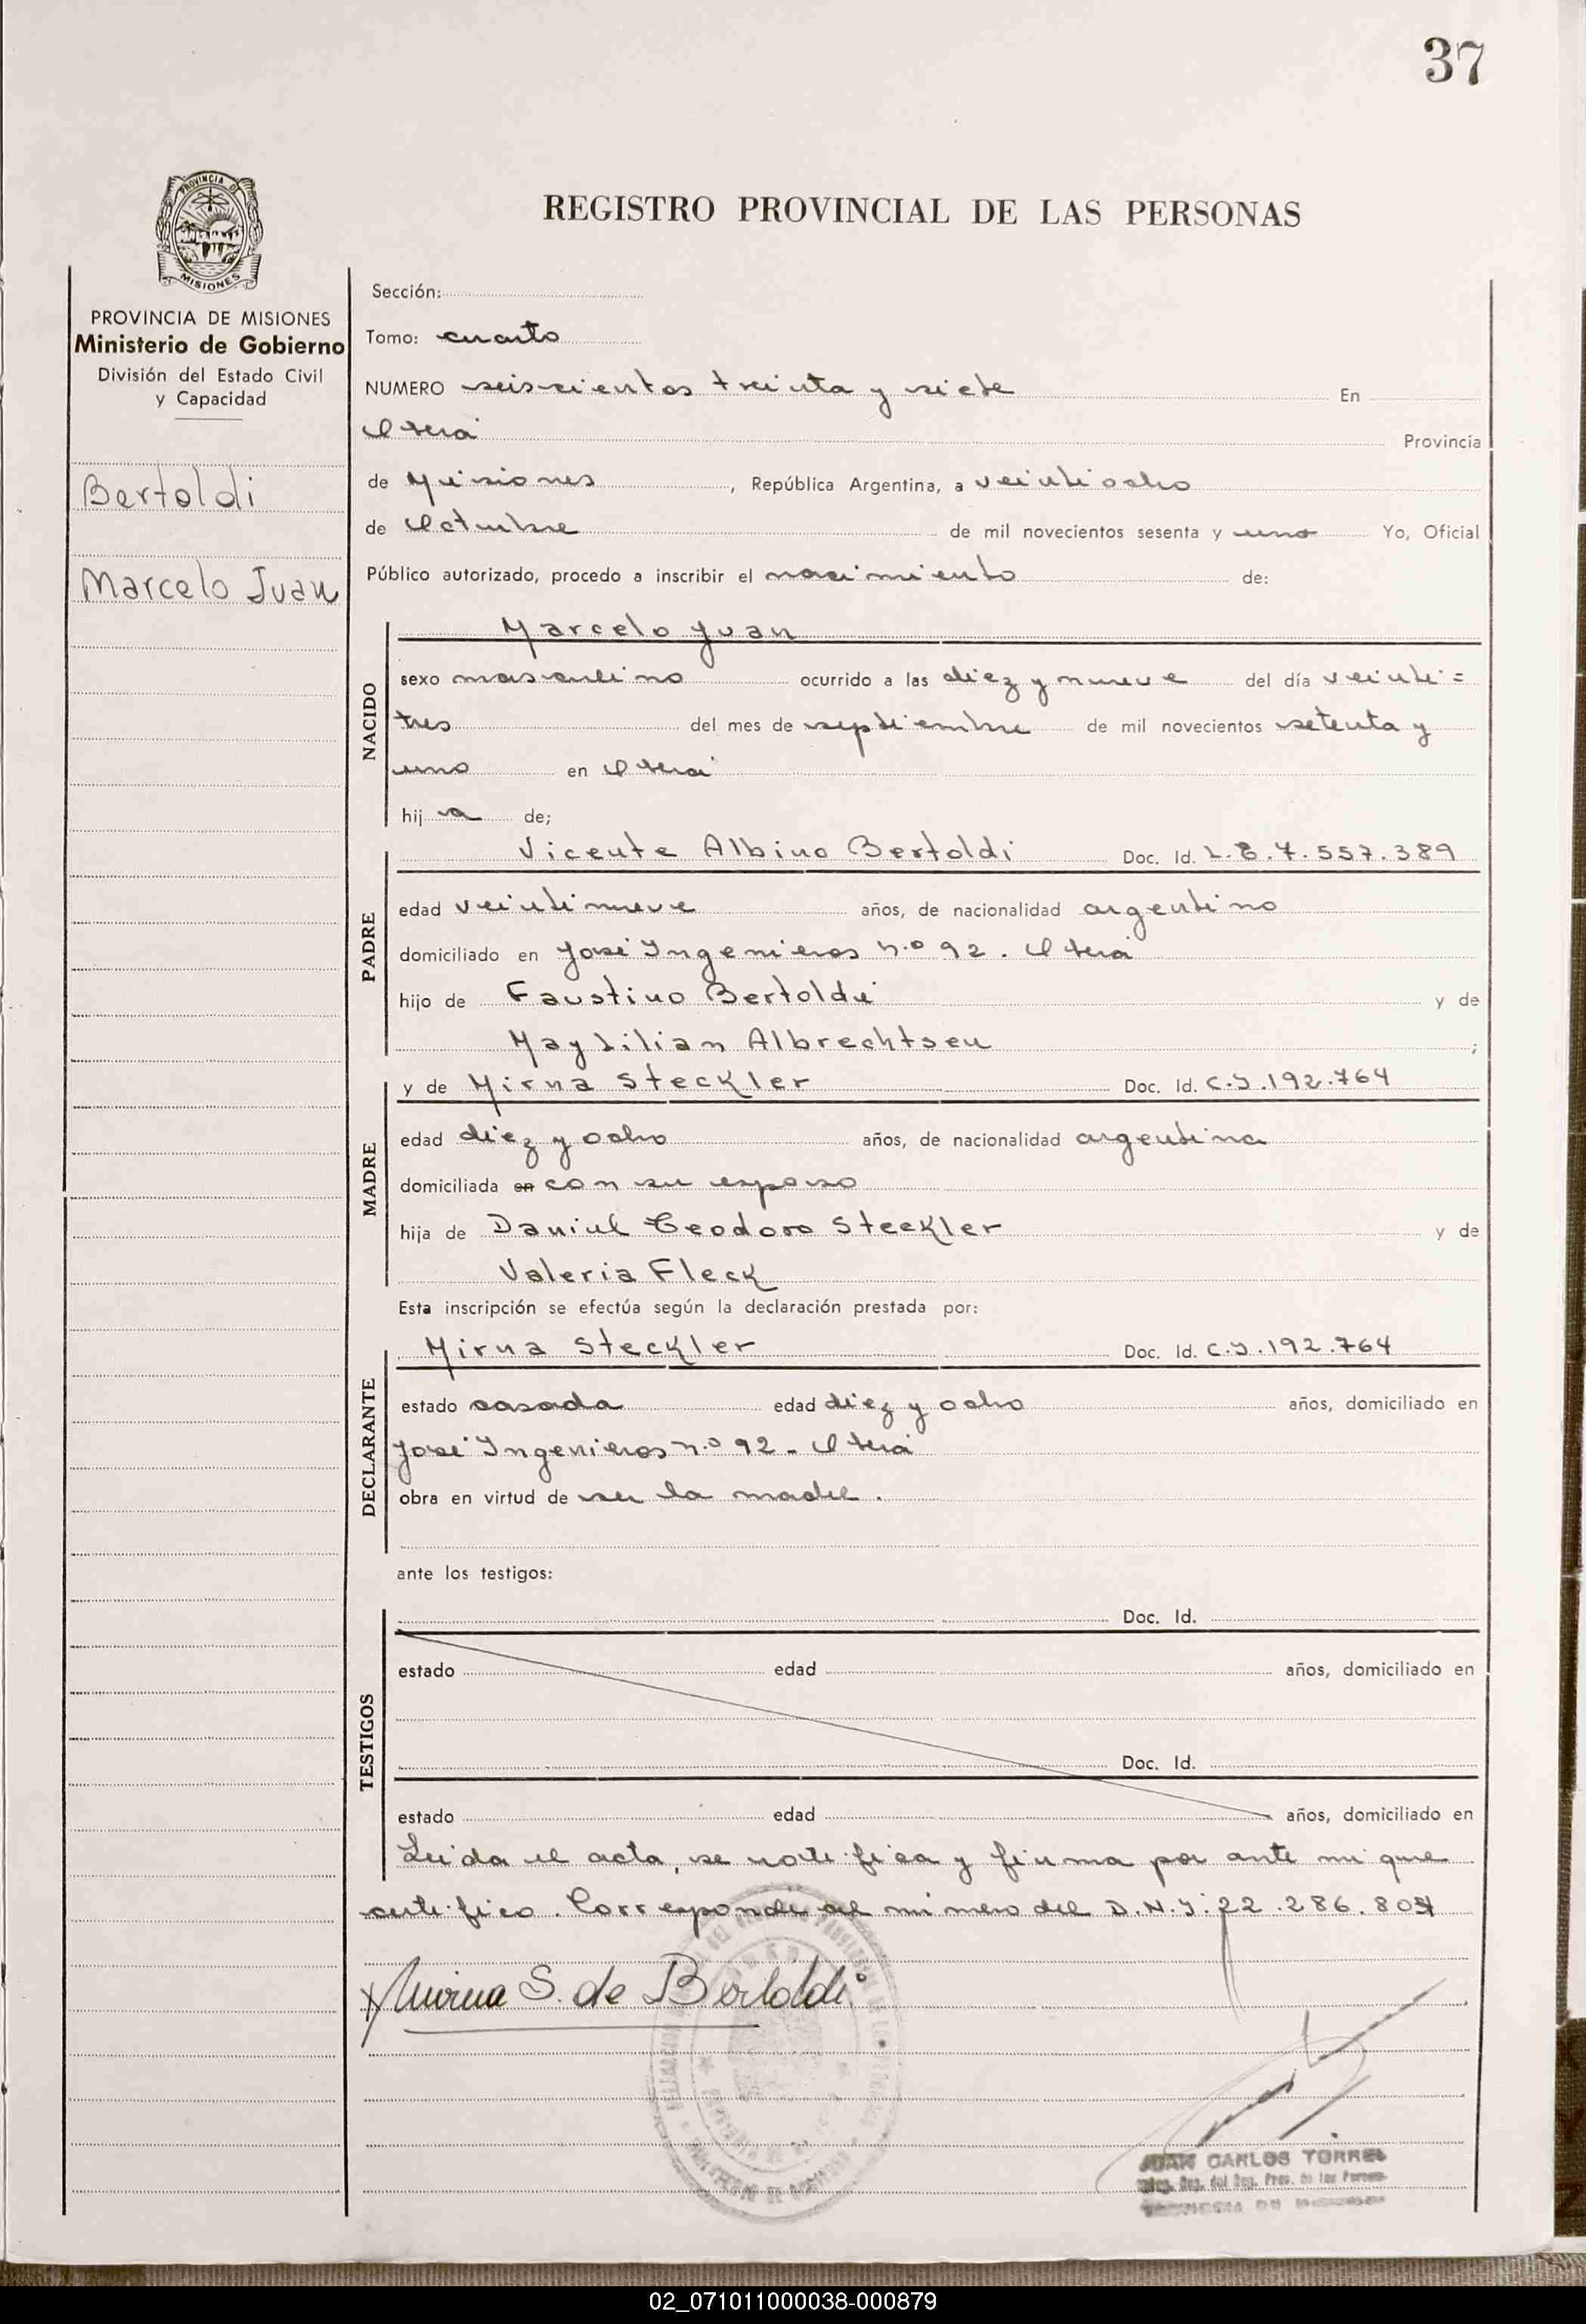 37
PROVINCIA DE
MISIONES
REGISTRO PROVINCIAL DE LAS PERSONAS
PROVINCIA DE MISIONES
Ministerio de Gobierno
División del Estado Civil
y Capacidad
Bertoldi
Marcelo Juan
Sección:
Tomo: cuarto
NUMERO seiscientos treinta y siete En
Oberá Provincia
de Misiones, República Argentina, a veintiocho
de Octubre de mil novecientos sesenta y uno Yo, Oficial
Público autorizado, procedo a inscribir el nacimiento de:
NACIDO
Marcelo Juan
sexo masculino ocurrido a las diez y nueve del día veinti=
tres del mes de septiembre de mil novecientos setenta y
uno en Oberá
hij o de;
PADRE
Vicente Albino Bertoldi Doc. Id. L.E. 7.557.389
edad veintinueve años, de nacionalidad argentino
domiciliado en José Ingenieros n.º 92. Oberá
hijo de Faustino Bertoldi y de
May Lilian Albrechtsen ;
MADRE
y de Mirna Steckler Doc. Id. C.I. 192.764
edad diez y ocho años, de nacionalidad argentina
domiciliada en con su esposo
hija de Daniel Teodoro Steckler y de
Valeria Fleck
Esta inscripción se efectúa según la declaración prestada por:
DECLARANTE
Mirna Steckler Doc. Id. C.I. 192.764
estado casada edad diez y ocho años, domiciliado en
José Ingenieros n.º 92 - Oberá
obra en virtud de ser la madre.
ante los testigos:
TESTIGOS
Doc. Id.
estado edad años, domiciliado en
Doc. Id.
estado edad años, domiciliado en
Leida el acta, se notifica y firma por ante mi que
certifico. Corresponde al número del D.N.I. 22.286.804
Mirna S. de Bertoldi
JUAN CARLOS TORRES
02_071011000038-000879